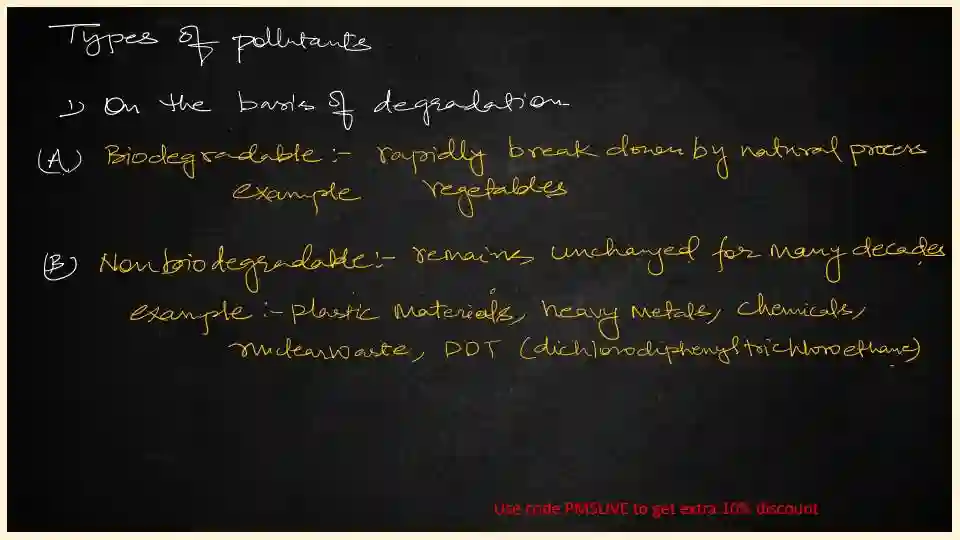 Types of pollutants
1) On the basis of degradation
(A) Biodegradable :- rapidly break down by natural process
example vegetables
(B) Non biodegradable :- remains unchanged for many decades
example :- plastic materials, heavy metals, chemicals,
nuclear waste, DDT (dichlorodiphenyltrichloroethane)
Use code PMSLIVE to get extra 10% discount